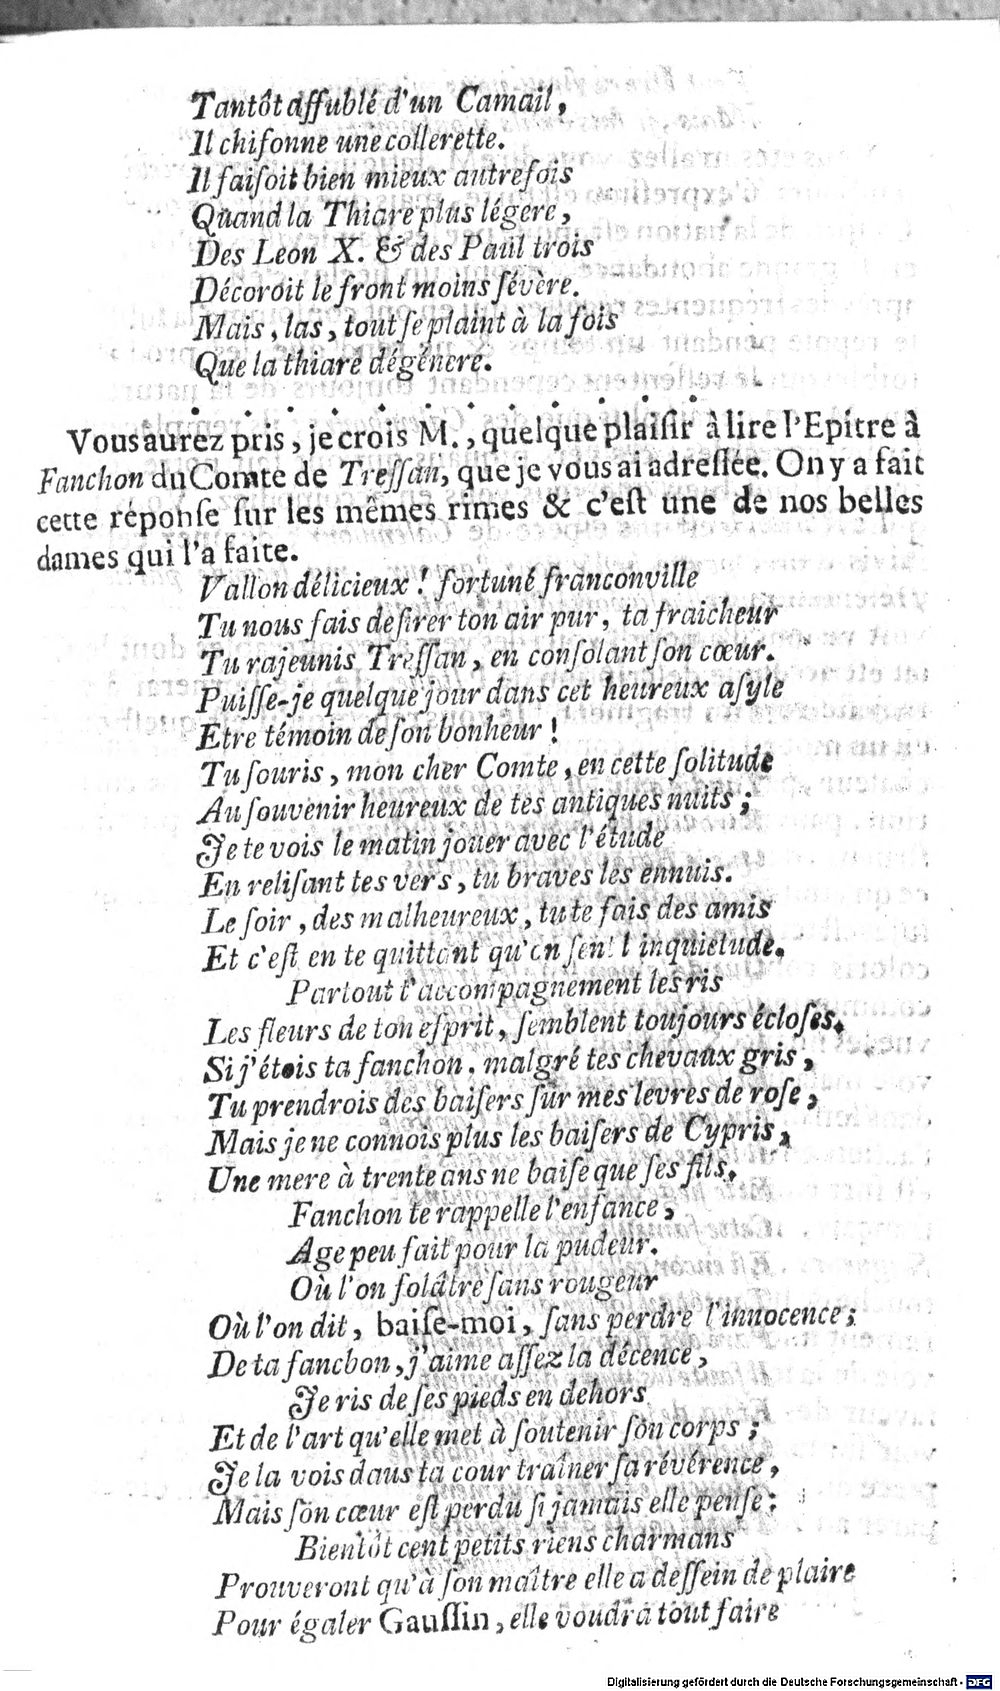 Tantôt affublé d'un Camail,
Il chifonne une collerette.
Il faiſoit bien mieux autrefois
Quand la Thiare plus légere,
Des Leon X. & des Paul trois
Décoroit le front moins ſévère.
Mais, las, tout ſe plaint à la fois
Que la thiare dégénere.
Vous aurez pris, je crois M., quelque plaiſir à lire l'Epitre à
Fanchon du Comte de Treſſan, que je vous ai adreſſée. On y a fait
cette réponſe ſur les mêmes rimes & c'eſt une de nos belles
dames qui l'a faite.
Vallon délicieux! fortuné franconville
Tu nous fais deſirer ton air pur, ta fraicheur
Tu rajeunis Treſſan, en conſolant ſon cœur.
Puiſſe-je quelque jour dans cet heureux aſyle
Etre témoin de ſon bonheur!
Tu ſouris, mon cher Comte, en cette ſolitude
Au ſouvenir heureux de tes antiques nuits;
Je te vois le matin jouer avec l'étude
En reliſant tes vers, tu braves les ennuis.
Le ſoir, des malheureux, tu te fais des amis
Et c'eſt en te quittant qu'on ſent l'inquietude.
Partout t'accompagnement les ris
Les fleurs de ton eſprit, ſemblent toujours écloſes.
Si j'étois ta fanchon, malgré tes chevaux gris,
Tu prendrois des baiſers ſur mes levres de roſe,
Mais je ne connois plus les baiſers de Cypris,
Une mere à trente ans ne baiſe que ſes fils.
Fanchon te rappelle l'enfance,
Age peu fait pour la pudeur.
Où l'on folâtre ſans rougeur
Où l'on dit, baiſe-moi, ſans perdre l'innocence;
De ta fancbon, j'aime aſſez la décence,
Je ris de ſes pieds en dehors
Et de l'art qu'elle met à ſoutenir ſon corps;
Je la vois dans ta cour traîner ſa révérence,
Mais ſon cœur eſt perdu ſi jamais elle penſe:
Bientôt cent petits riens charmans
Prouveront qu'à ſon maître elle a deſſein de plaire
Pour égaler Gauſſin, elle voudra tout faire
Digitalisierung gefördert durch die Deutsche Forschungsgemeinschaft - DFG